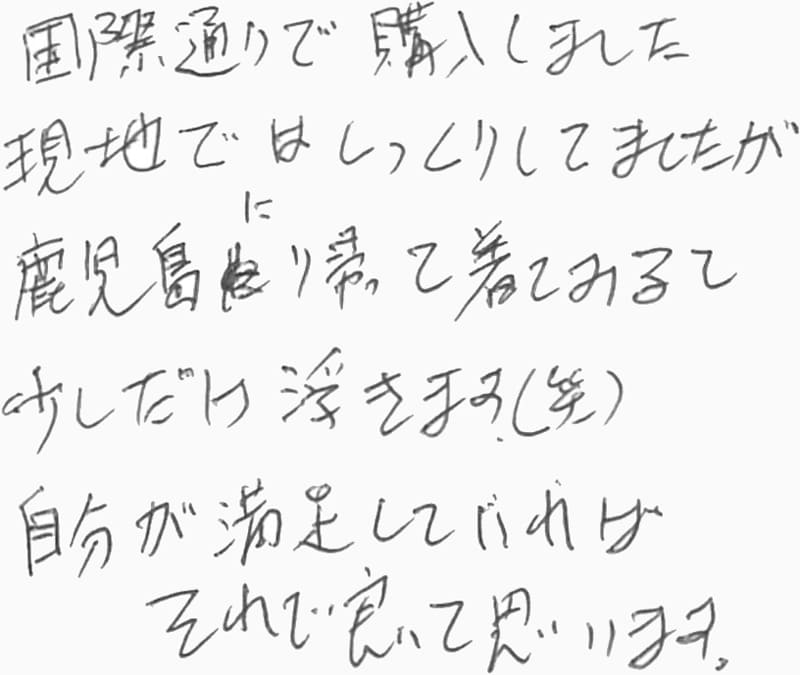 国際通りで購入しました
現地ではしっくりしてましたが
鹿児島に帰って着てみると
少しだけ浮きます(笑)
自分が満足していれば
それで良いと思います。